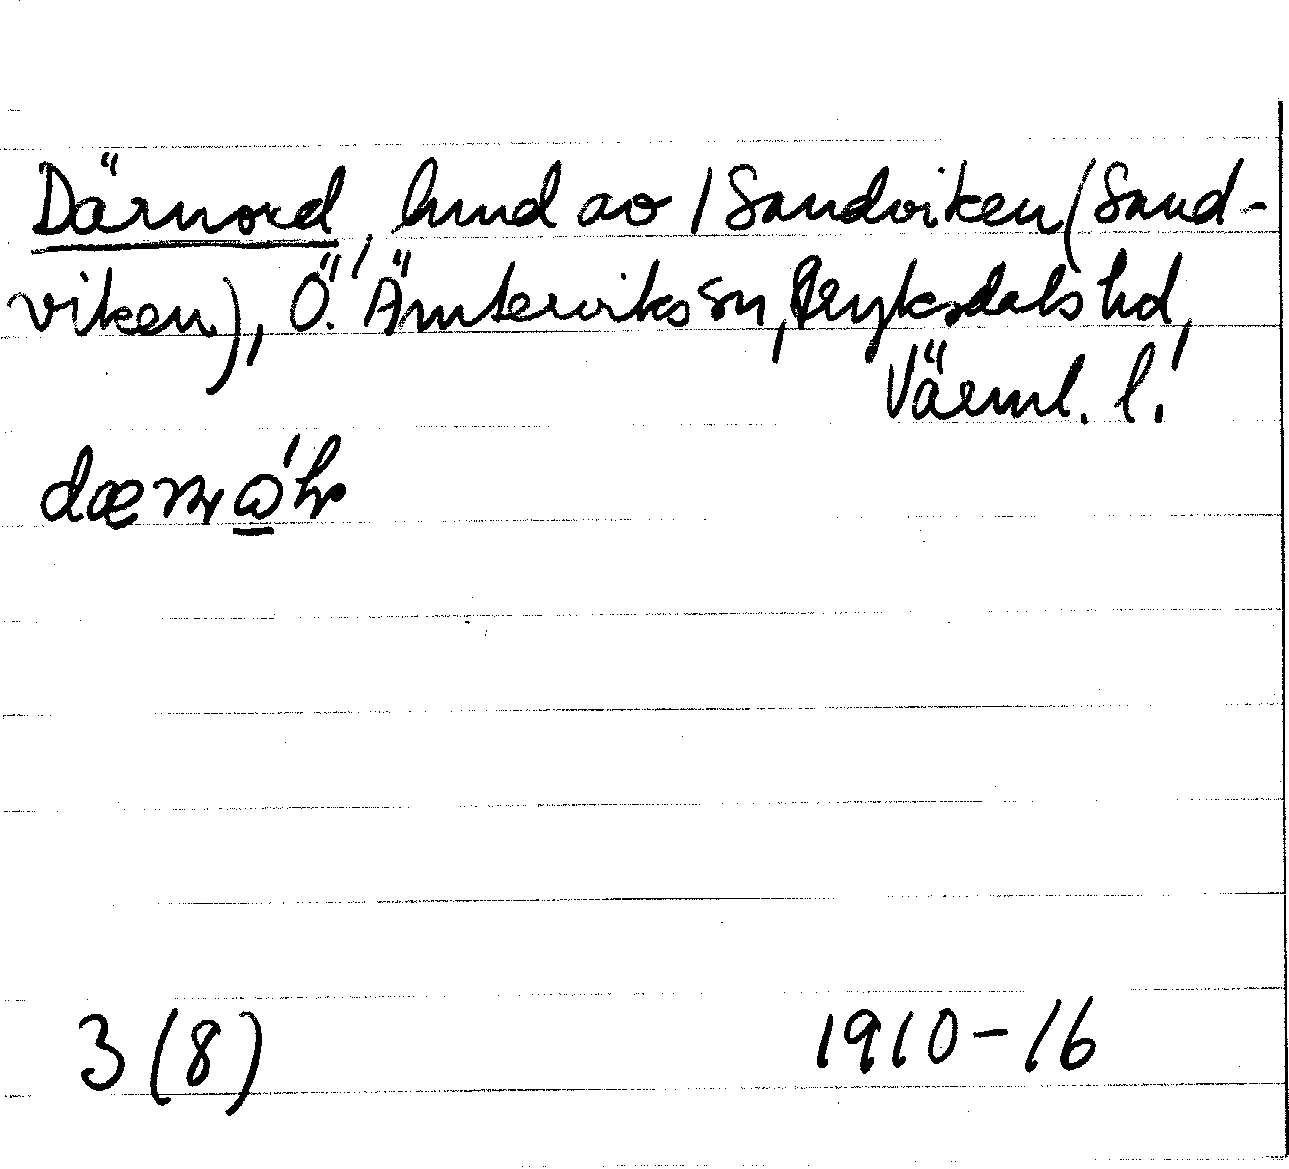 Därnord, hmd av 1 Sandviken (Sand-
viken), Ö. Ämterviks sn, Fryksdals hd,
Värml. l.
3 (8) 1910-16